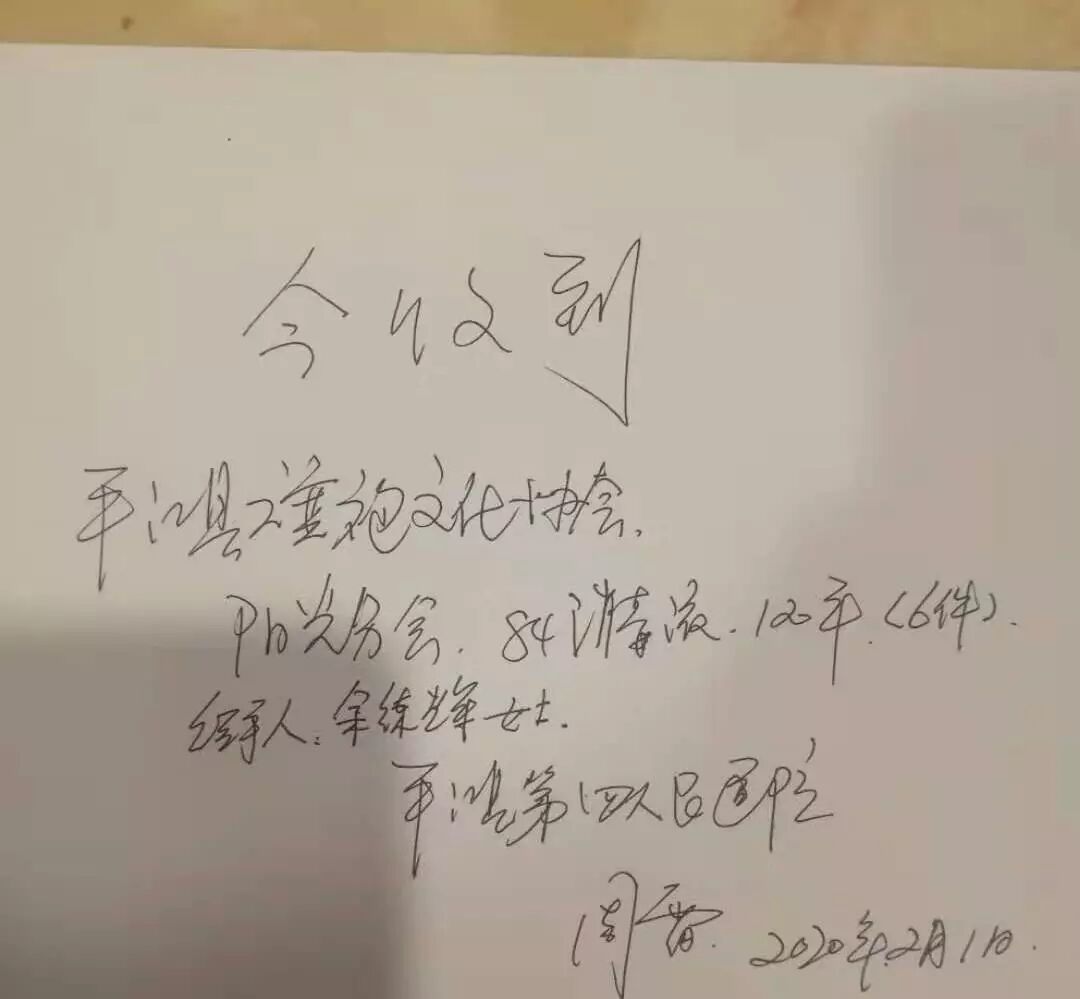 今收到
平江县旗袍文化协会.
阳光分会. 84消毒液. 120平.(6件).
经手人:余练辉女士.
平江县第四人民医院
周雷. 2020年2月1日.